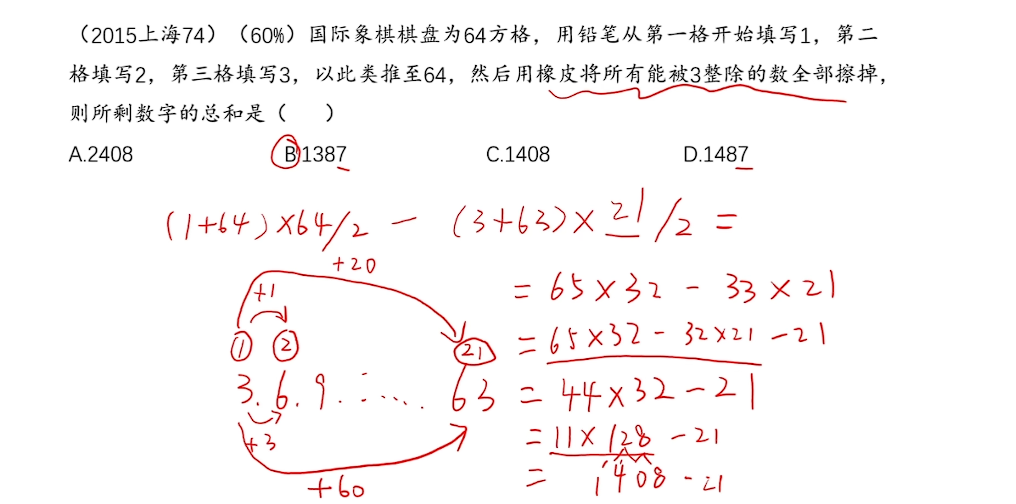 （2015上海74）（60%）国际象棋棋盘为64方格，用铅笔从第一格开始填写1，第二
格填写2，第三格填写3，以此类推至64，然后用橡皮将所有能被3整除的数全部擦掉，
则所剩数字的总和是（ ）
A.2408 B.1387 C.1408 D.1487
(1+64)×64/2 － (3+63)×21/2 =
+20
= 65×32 - 33×21
+1
① ② ㉑ = 65×32 - 32×21 - 21
3. 6. 9. ...... 63 = 44×32 - 21
+3 = 11×128 - 21
= 1408 - 21
+60